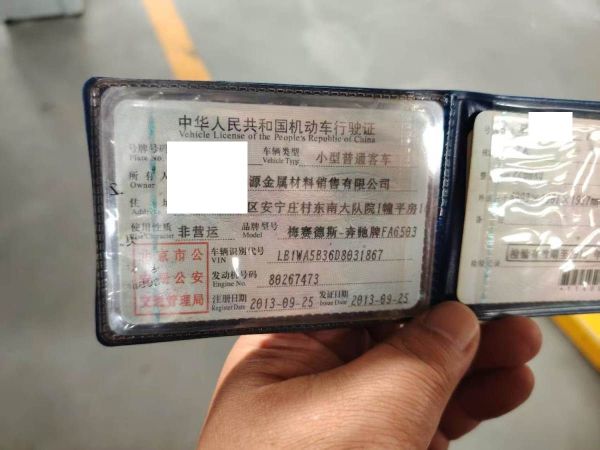 中华人民共和国机动车行驶证
Vehicle License of the People's Republic of China
号牌号码
Plate No.
车辆类型
Vehicle Type
小型普通客车
所有人
Owner
源金属材料销售有限公司
住址
Address
区安宁庄村东南大队院1幢平房1
使用性质
非营运
品牌型号
Model
梅赛德斯-奔驰牌FA6503
车辆识别代号
VIN
LB1WA5B36D8031867
发动机号码
Engine No.
80267473
注册日期
Register Date
2013-09-25
发证日期
Issue Date
2013-09-25
北京市公
安局公安
交通管理局